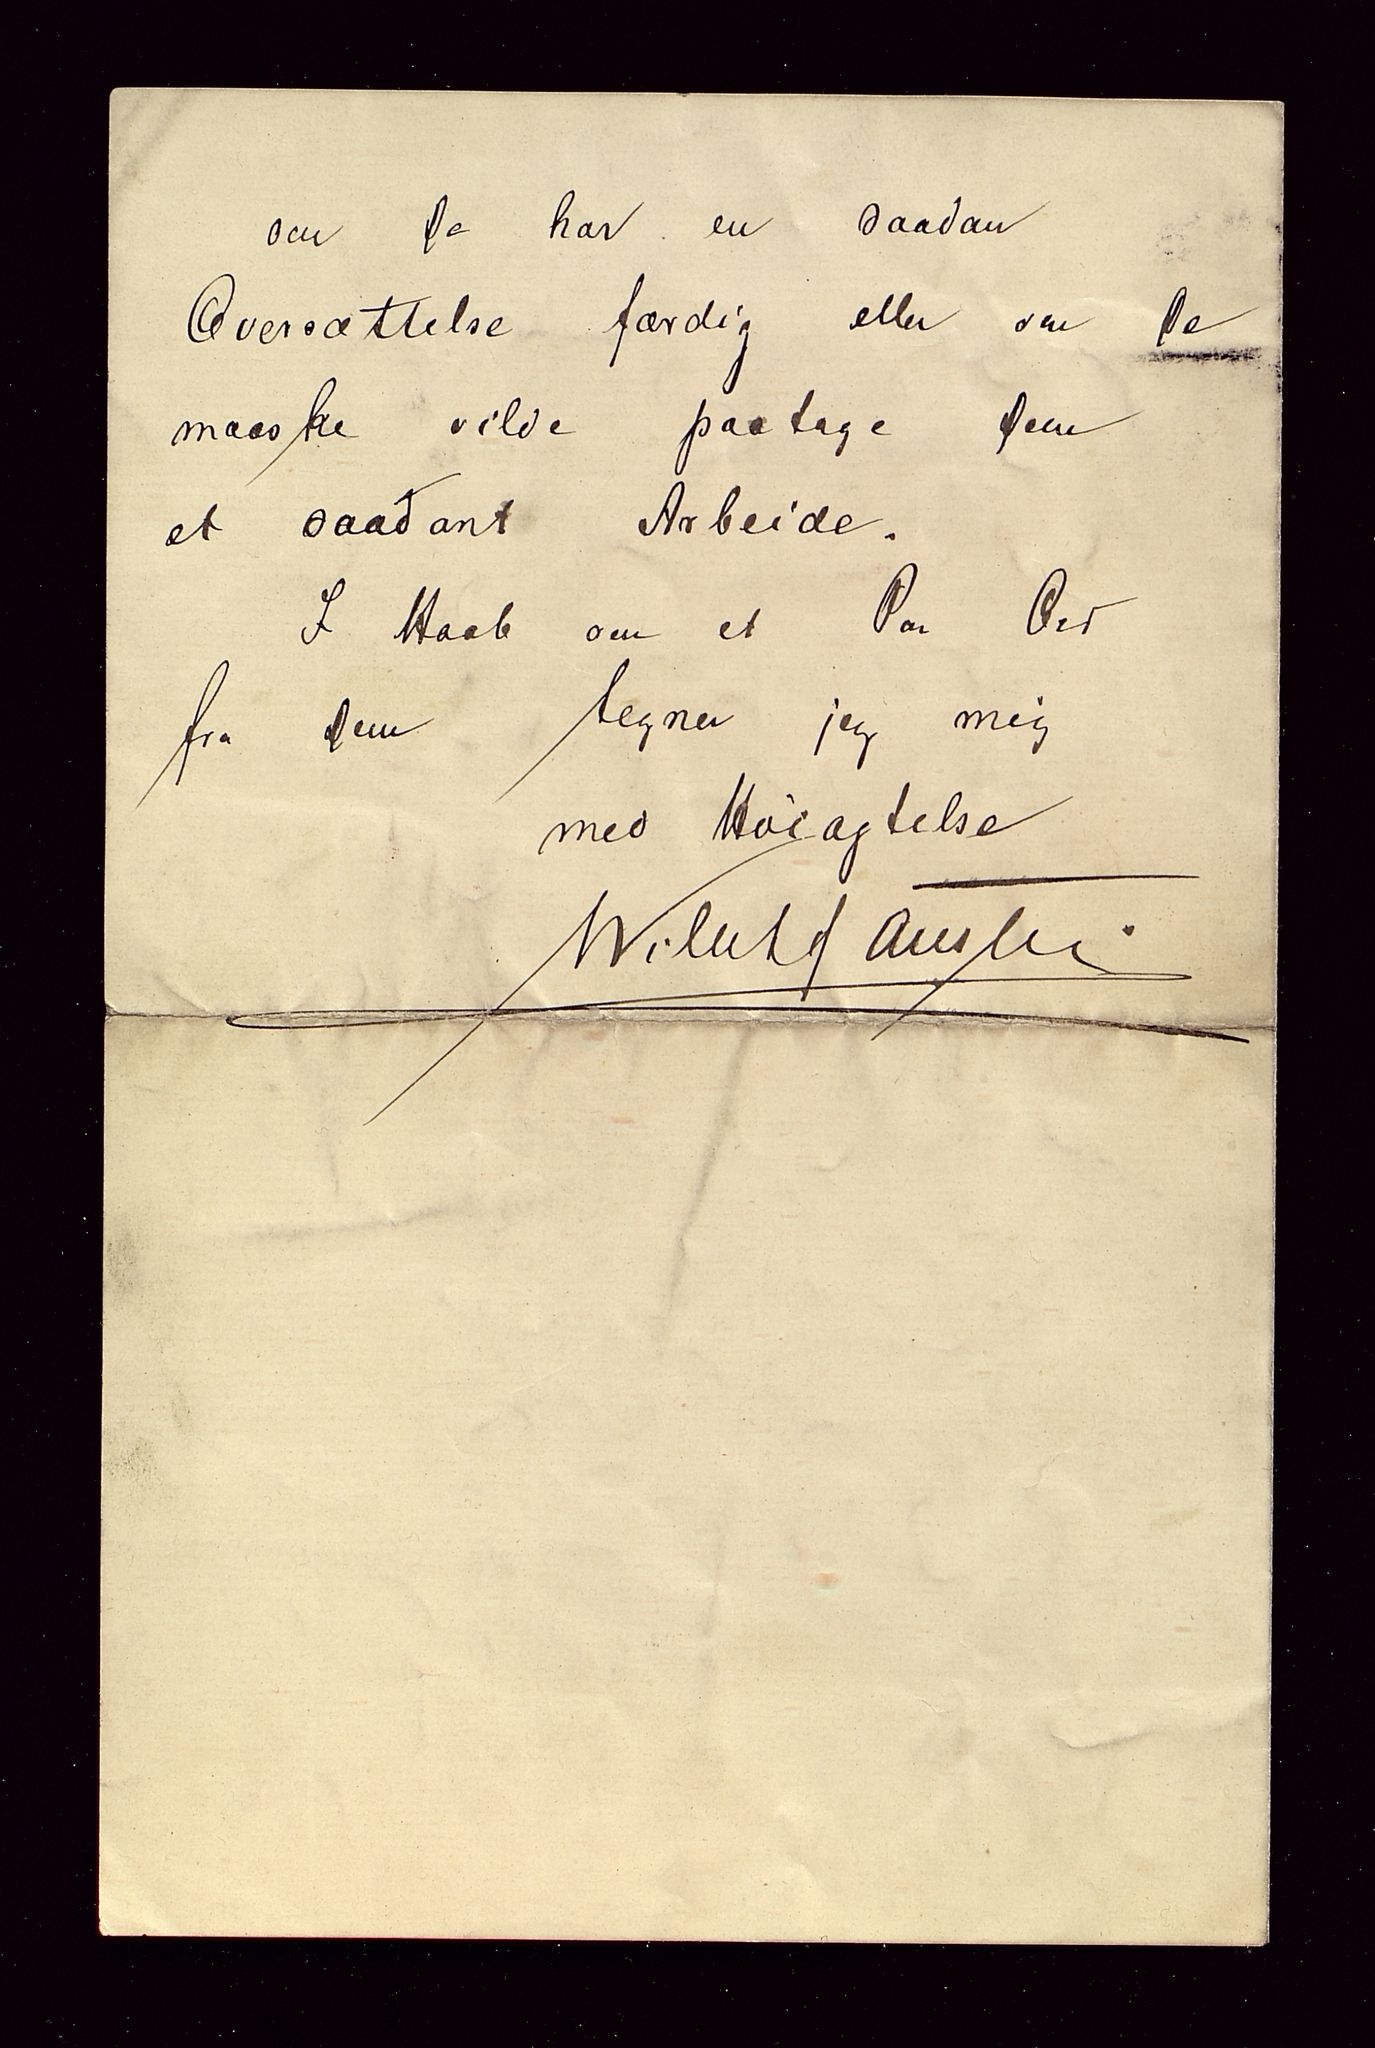 om De har en saadan
Oversættelse færdig eller om De
maaske vilde paatage Dem
et saadant Arbeide.
I Haab om et Par Ord
fra Dem tegner jeg mig
med Høiagtelse